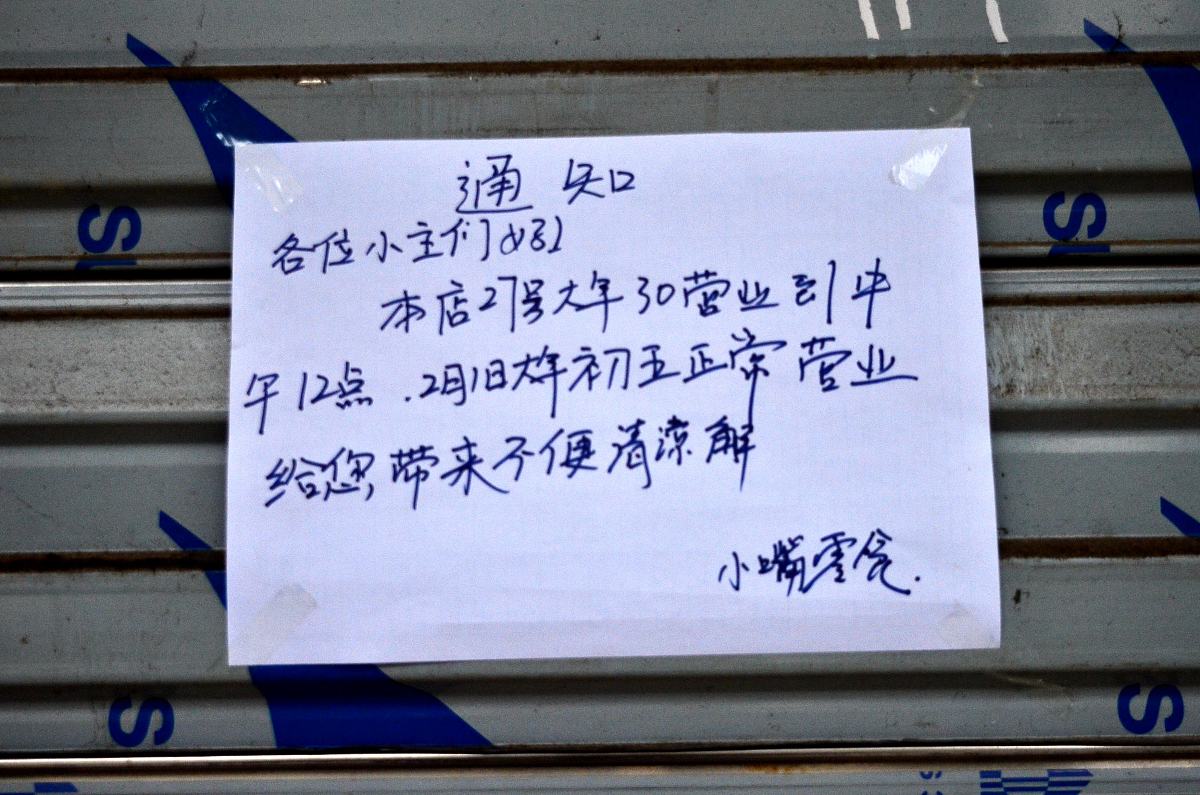 通知
各位小主们好!
本店27号大年30营业到中
午12点.2月1日大年初五正常营业
给您带来不便清凉解
小嘴零食.
S
S
S
S